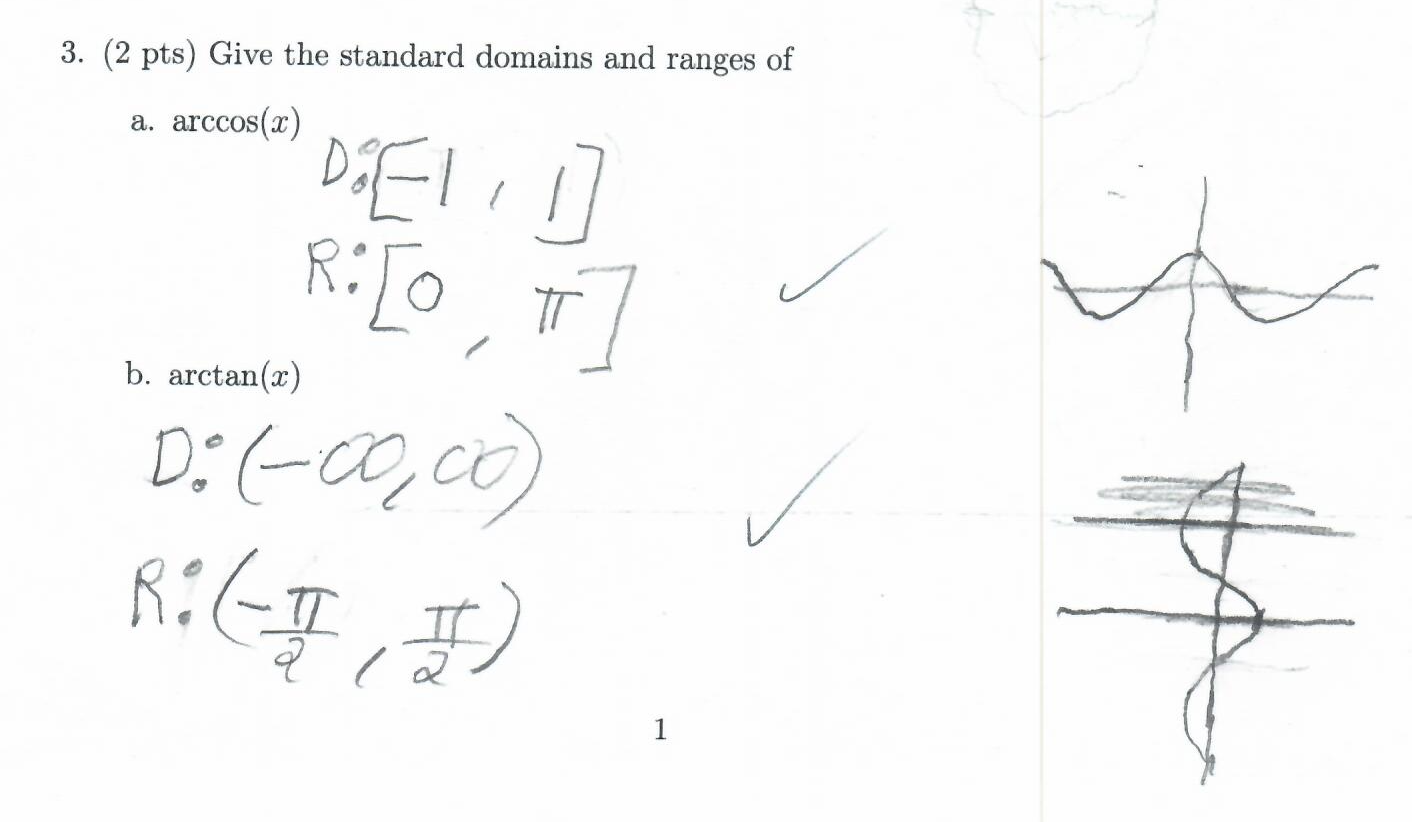 3. (2 pts) Give the standard domains and ranges of
a. arccos(x)
D: [-1, 1]
R: [0, π]
b. arctan(x)
D: (-∞, ∞)
R: (-π/2, π/2)
1